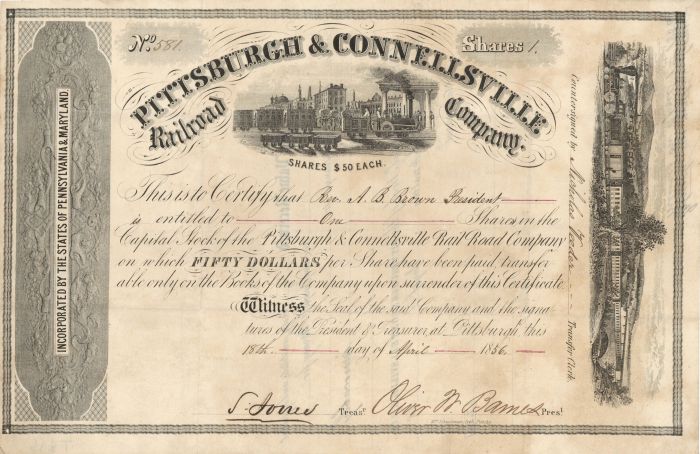 No 581.
Shares 1.
PITTSBURGH & CONNELLSVILLE
Railroad Company.
SHARES $50 EACH.
This is to Certify that Rev. A. B. Brown President
is entitled to One Shares in the
Capital Stock of the Pittsburgh & Connellsville Rail Road Company
on which FIFTY DOLLARS per Share have been paid transfer
able only on the Books of the Company upon surrender of this Certificate
Witness the Seal of the said Company and the signa
tures of the President & Treasurer, at Pittsburgh this
18th. day of April 1856.
S. Jones Treast. Oliver W Barnes Prest.
INCORPORATED BY THE STATES OF PENNSYLVANIA & MARYLAND.
Countersigned by Nicholas Transfer Clerk